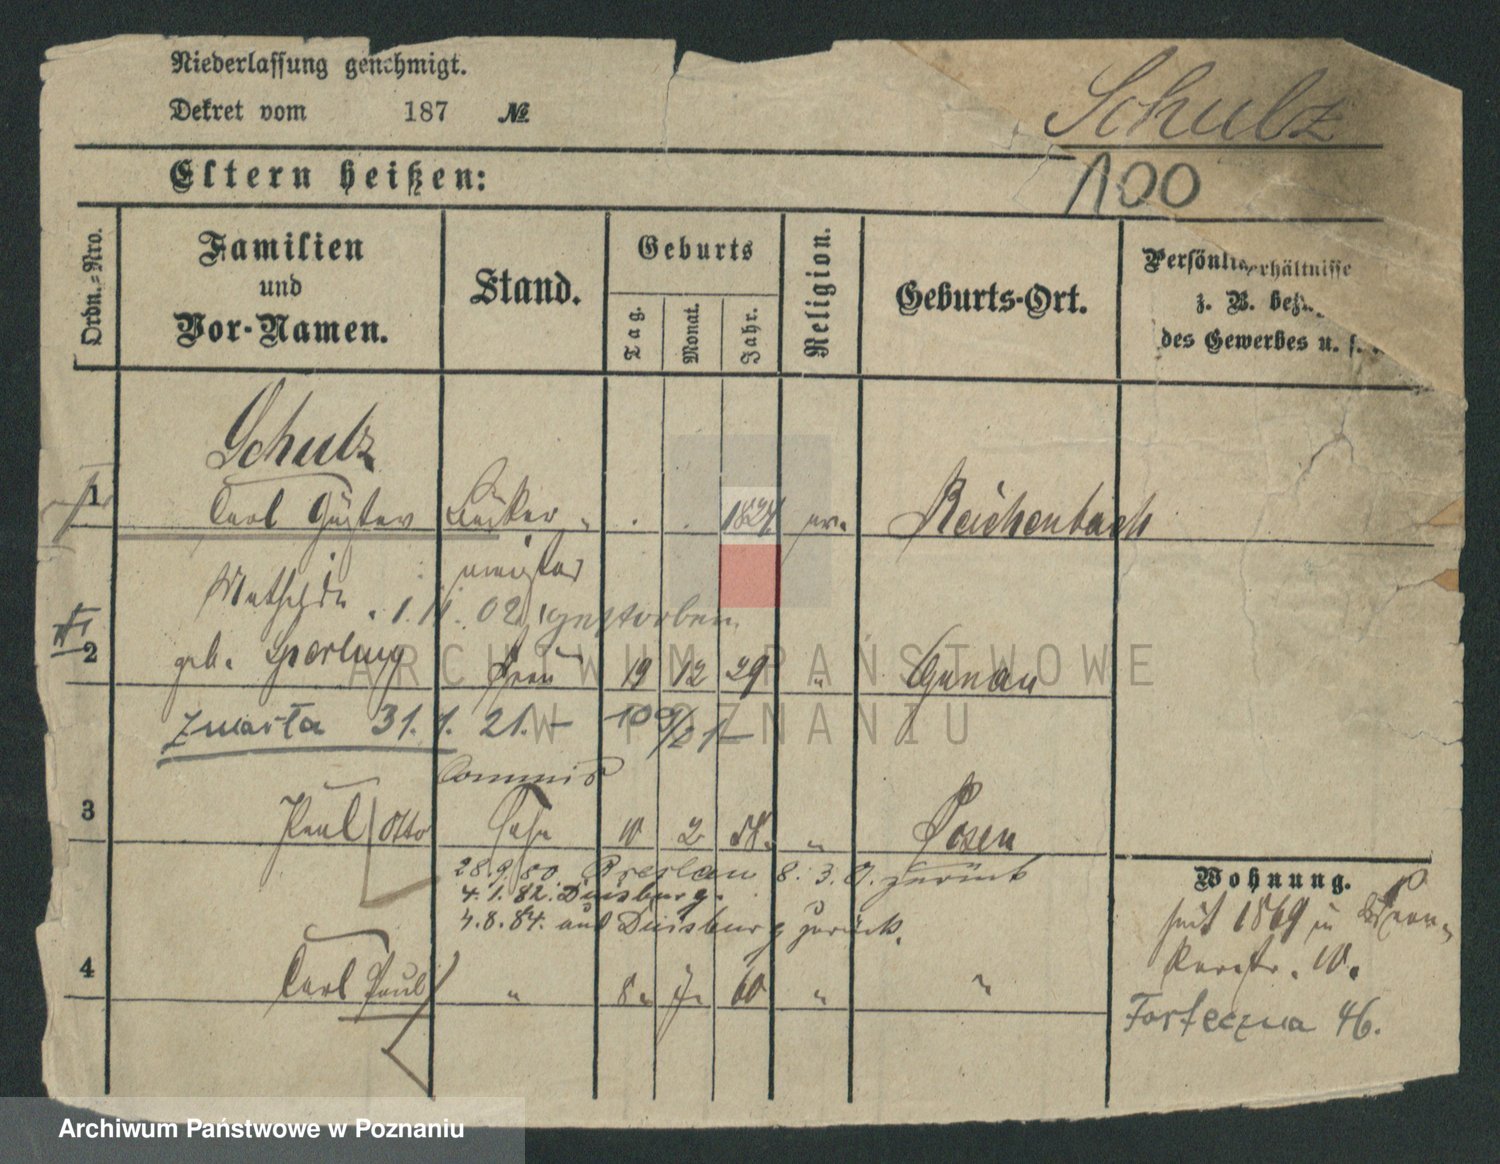 Niederlassung genehmigt.
Dekret vom 187 №
Schulz
Eltern heißen:
100
Ordn.-Nro.
Familien
und
Vor-Namen.
Stand.
Geburts
Tag.
Monat.
Jahr.
Religion.
Geburts-Ort.
Persönl rhältnisse
z. B. bez
des Gewerbes u. s.
Schulz
1 Carl Gustav 182 ev. Reichenbach
meister
Mathilde 1.11.02 gestorben
2 geb. Sperling Frau 19 12 29 "
zmarła 31.1.21.–
Commis
3 Paul Otto Sohn 10 2 Posen
28.9.80 Breslau 8.3. zurück
4.1.82. Duisburg.
4.8.84. aus Duisburg zurück.
4 Carl Paul " 8. 7. 60 " "
Wohnung.
seit 1869 in
10.
Forteczna 46.
ARCHIWUM PAŃSTWOWE
W POZNANIU
Archiwum Państwowe w Poznaniu